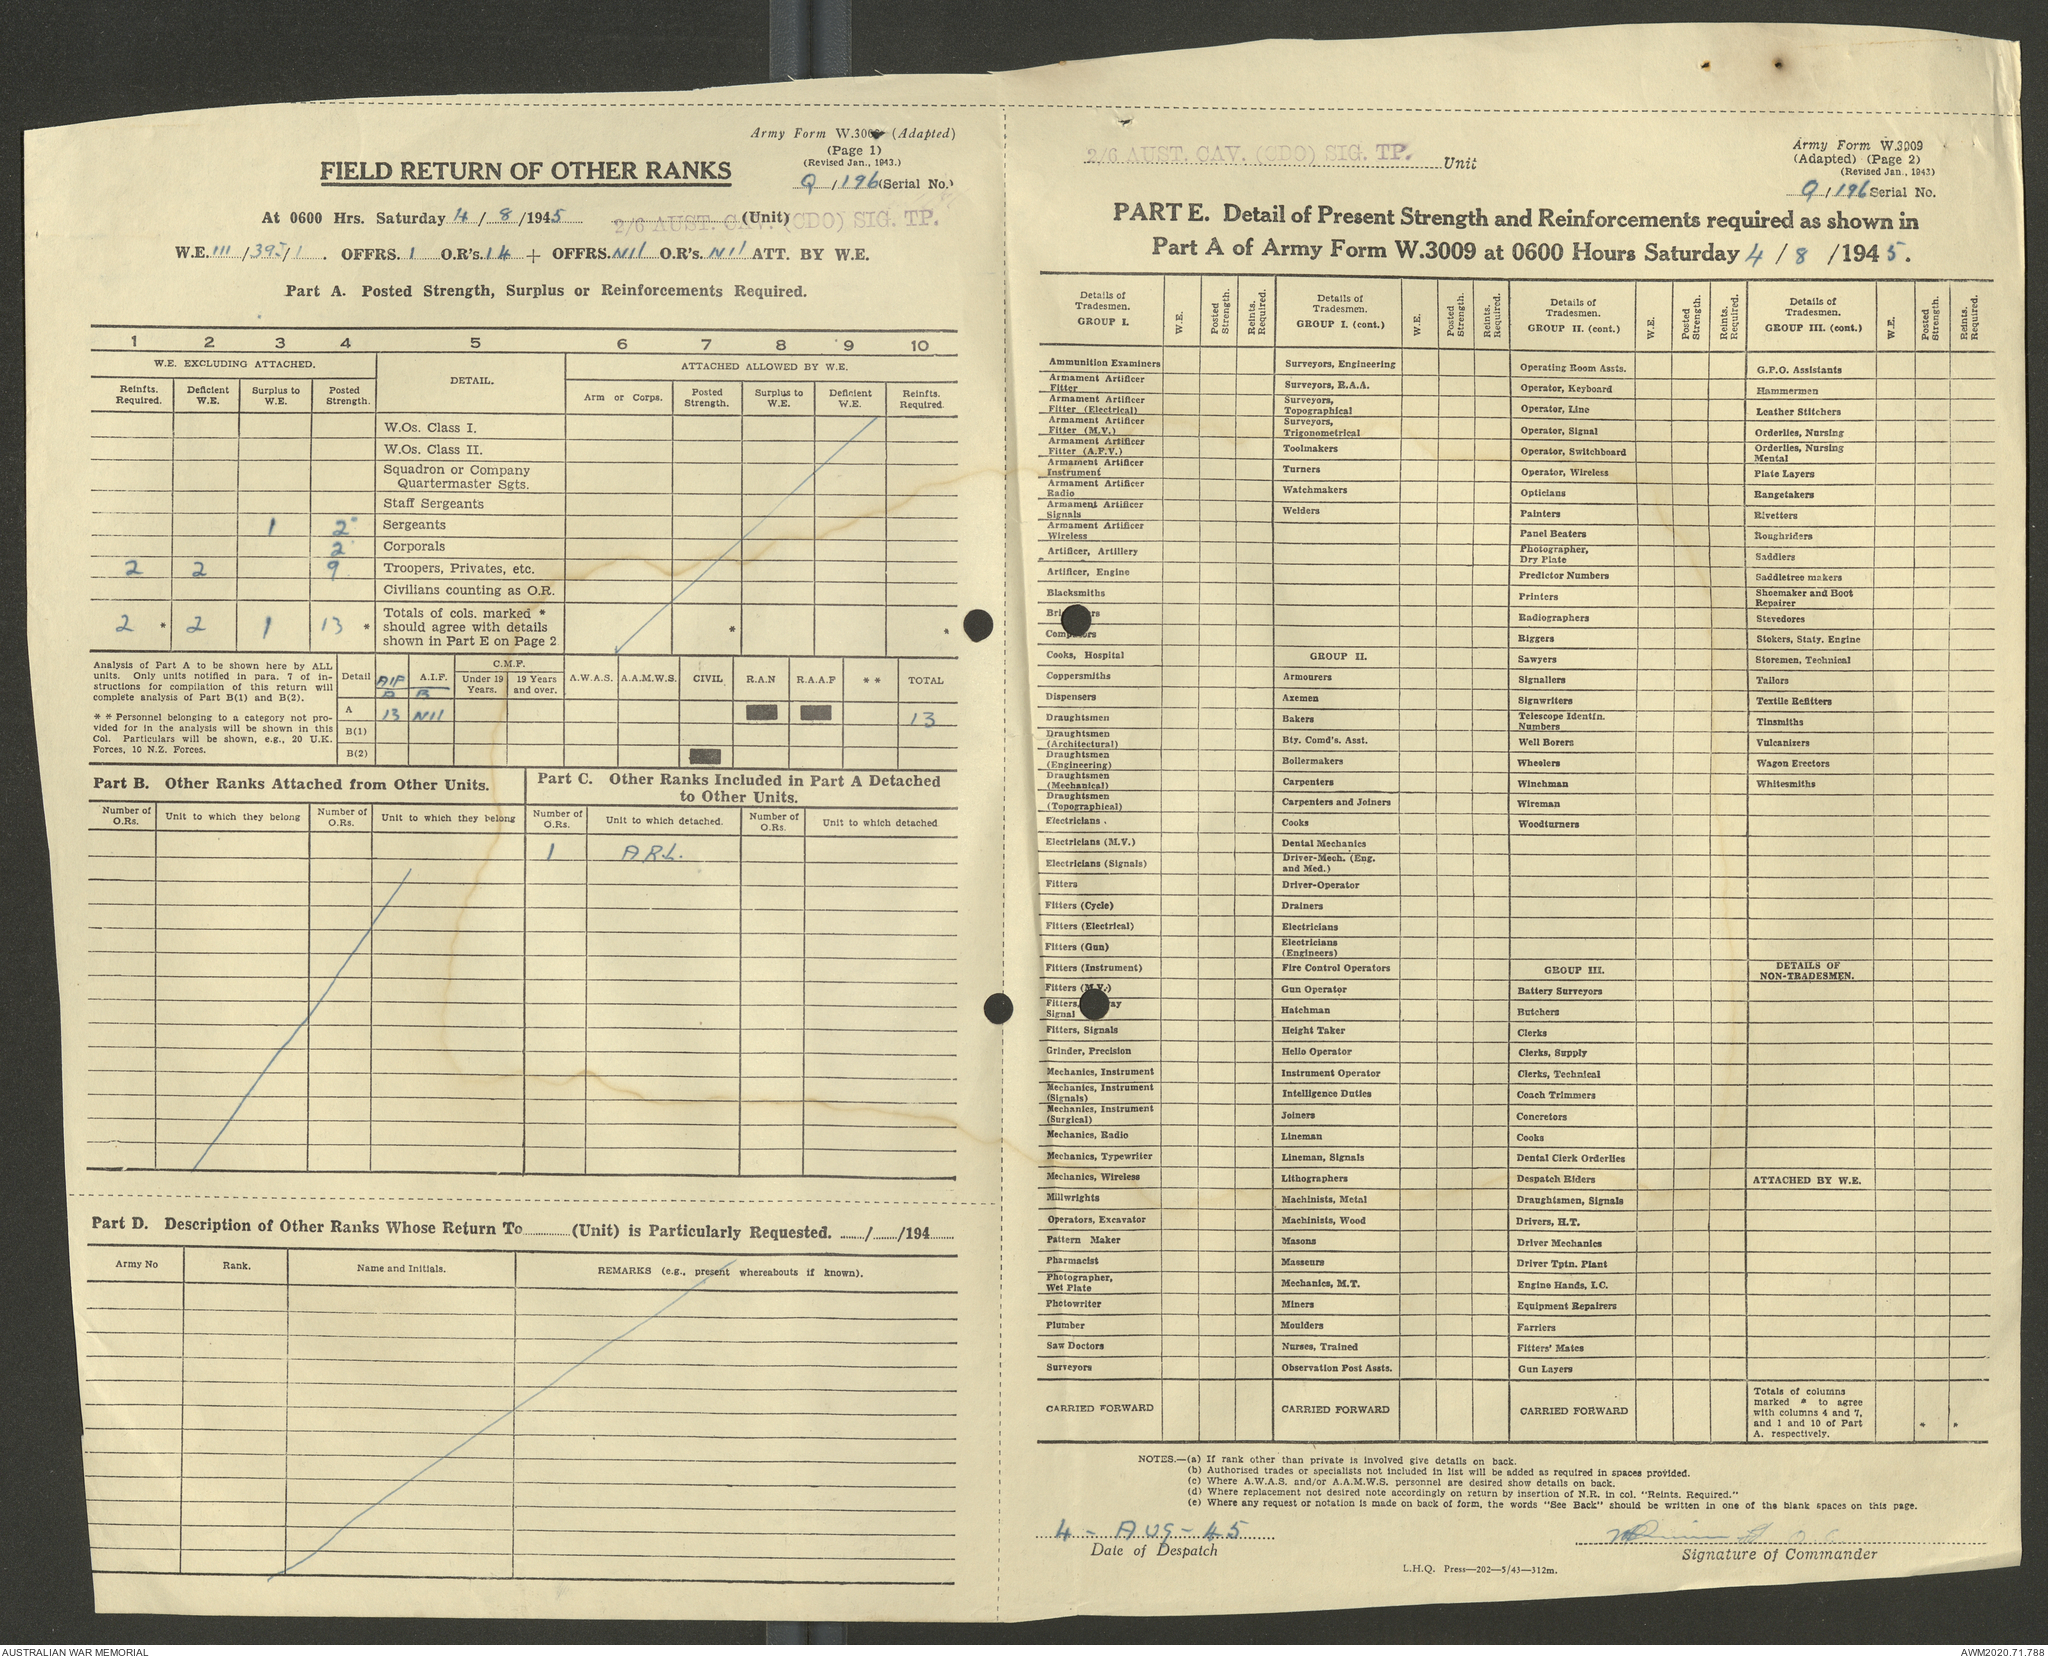 Army Form W.3009 (Adapted)
(Page 1)
(Revised Jan., 1943.)
FIELD RETURN OF OTHER RANKS
Q/196 (Serial No.)
At 0600 Hrs. Saturday 4/8/1945 2/6 AUST. CAV. (CDO) SIG. TP. (Unit)
W.E. III/395/1. OFFRS. 1 O.R's. 14 + OFFRS. Nil O.R's. Nil ATT. BY W.E.
Part A. Posted Strength, Surplus or Reinforcements Required.
1 2 3 4 5 6 7 8 9 10
W.E. EXCLUDING ATTACHED.
DETAIL.
ATTACHED ALLOWED BY W.E.
Reinfts. Required.
Deficient W.E.
Surplus to W.E.
Posted Strength.
Arm or Corps.
Posted Strength.
Surplus to W.E.
Deficient W.E.
Reinfts. Required.
W.Os. Class I.
W.Os. Class II.
Squadron or Company
Quartermaster Sgts.
Staff Sergeants
1 2 Sergeants
2 Corporals
2 2 9 Troopers, Privates, etc.
Civilians counting as O.R.
2 * 2 1 13 * Totals of cols. marked *
should agree with details
shown in Part E on Page 2
* *
Analysis of Part A to be shown here by ALL
units. Only units notified in para. 7 of in-
structions for compilation of this return will
complete analysis of Part B(1) and B(2).
* * Personnel belonging to a category not pro-
vided for in the analysis will be shown in this
Col. Particulars will be shown, e.g., 20 U.K.
Forces, 10 N.Z. Forces.
Detail AIF A A.I.F. B C.M.F. Under 19 Years. 19 Years and over. A.W.A.S. A.A.M.W.S. CIVIL R.A.N R.A.A.F * * TOTAL
A 13 Nil 13
B(1)
B(2)
Part B. Other Ranks Attached from Other Units.
Part C. Other Ranks Included in Part A Detached
to Other Units.
Number of O.Rs. Unit to which they belong Number of O.Rs. Unit to which they belong Number of O.Rs. Unit to which detached. Number of O.Rs. Unit to which detached
1 A.R.L.
Part D. Description of Other Ranks Whose Return To (Unit) is Particularly Requested. / /194
Army No Rank. Name and Initials. REMARKS (e.g., present whereabouts if known).
2/6 AUST. CAV. (CDO) SIG. TP. Unit
Army Form W.3009
(Adapted) (Page 2)
(Revised Jan., 1943)
Q/196 Serial No.
PART E. Detail of Present Strength and Reinforcements required as shown in
Part A of Army Form W.3009 at 0600 Hours Saturday 4/8/1945.
Details of Tradesmen. GROUP I. W.E. Posted Strength. Reints. Required.
Details of Tradesmen. GROUP I. (cont.) W.E. Posted Strength. Reints. Required.
Details of Tradesmen. GROUP II. (cont.) W.E. Posted Strength. Reints. Required.
Details of Tradesmen. GROUP III. (cont.) W.E. Posted Strength. Reints. Required.
Ammunition Examiners
Armament Artificer
Fitter
Armament Artificer
Fitter (Electrical)
Armament Artificer
Fitter (M.V.)
Armament Artificer
Fitter (A.F.V.)
Armament Artificer
Instrument
Armament Artificer
Radio
Armament Artificer
Signals
Armament Artificer
Wireless
Artificer, Artillery
Artificer, Engine
Blacksmiths
Cooks, Hospital
Coppersmiths
Dispensers
Draughtsmen
Draughtsmen
(Architectural)
Draughtsmen
(Engineering)
Draughtsmen
(Mechanical)
Draughtsmen
(Topographical)
Electricians
Electricians (M.V.)
Electricians (Signals)
Fitters
Fitters (Cycle)
Fitters (Electrical)
Fitters (Gun)
Fitters (Instrument)
Fitters (M.V.)
Fitters,
Signal
Fitters, Signals
Grinder, Precision
Mechanics, Instrument
Mechanics, Instrument
(Signals)
Mechanics, Instrument
(Surgical)
Mechanics, Radio
Mechanics, Typewriter
Mechanics, Wireless
Millwrights
Operators, Excavator
Pattern Maker
Pharmacist
Photographer,
Wet Plate
Photowriter
Plumber
Saw Doctors
Surveyors
CARRIED FORWARD
Surveyors, Engineering
Surveyors, R.A.A.
Surveyors,
Topographical
Surveyors,
Trigonometrical
Toolmakers
Turners
Watchmakers
Welders
GROUP II.
Armourers
Axemen
Bakers
Bty. Comd's. Asst.
Boilermakers
Carpenters
Carpenters and Joiners
Cooks
Dental Mechanics
Driver-Mech. (Eng.
and Med.)
Driver-Operator
Drainers
Electricians
Electricians
(Engineers)
Fire Control Operators
Gun Operator
Hatchman
Height Taker
Helio Operator
Instrument Operator
Intelligence Duties
Joiners
Lineman
Lineman, Signals
Lithographers
Machinists, Metal
Machinists, Wood
Masons
Masseurs
Mechanics, M.T.
Miners
Moulders
Nurses, Trained
Observation Post Assts.
CARRIED FORWARD
Operating Room Assts.
Operator, Keyboard
Operator, Line
Operator, Signal
Operator, Switchboard
Operator, Wireless
Opticians
Painters
Panel Beaters
Photographer,
Dry Plate
Predictor Numbers
Printers
Radiographers
Riggers
Sawyers
Signallers
Signwriters
Telescope Identfn.
Numbers
Well Borers
Wheelers
Winchman
Wireman
Woodturners
GROUP III.
Battery Surveyors
Butchers
Clerks
Clerks, Supply
Clerks, Technical
Coach Trimmers
Concretors
Cooks
Dental Clerk Orderlies
Despatch Riders
Draughtsmen, Signals
Drivers, H.T.
Driver Mechanics
Driver Tptn. Plant
Engine Hands, I.C.
Equipment Repairers
Farriers
Fitters' Mates
Gun Layers
CARRIED FORWARD
G.P.O. Assistants
Hammermen
Leather Stitchers
Orderlies, Nursing
Orderlies, Nursing
Mental
Plate Layers
Rangetakers
Rivetters
Roughriders
Saddlers
Saddletree makers
Shoemaker and Boot
Repairer
Stevedores
Stokers, Staty. Engine
Storemen, Technical
Tailors
Textile Refitters
Tinsmiths
Vulcanizers
Wagon Erectors
Whitesmiths
DETAILS OF
NON-TRADESMEN.
ATTACHED BY W.E.
Totals of columns
marked * to agree
with columns 4 and 7,
and 1 and 10 of Part
A. respectively.
* *
NOTES.—(a) If rank other than private is involved give details on back.
(b) Authorised trades or specialists not included in list will be added as required in spaces provided.
(c) Where A.W.A.S. and/or A.A.M.W.S. personnel are desired show details on back.
(d) Where replacement not desired note accordingly on return by insertion of N.R. in col. "Reints. Required."
(e) Where any request or notation is made on back of form, the words "See Back" should be written in one of the blank spaces on this page.
4 - AUG - 45
Date of Despatch
Signature of Commander
L.H.Q. Press—202—5/43—312m.
AUSTRALIAN WAR MEMORIAL
AWM2020.71.788